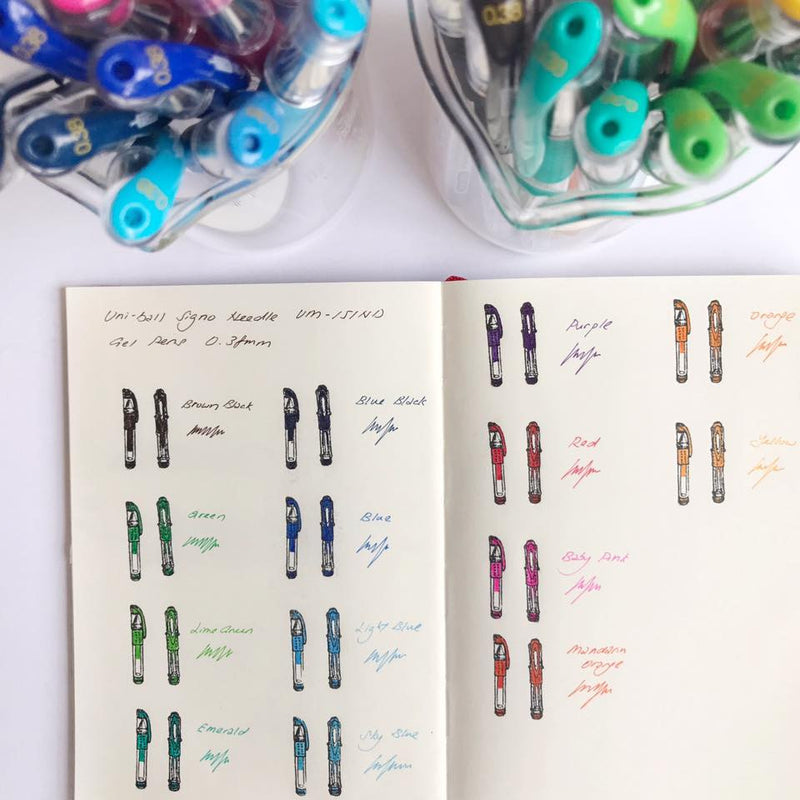 Uni-ball Signo Needle UM-151ND
Gel Pens 0.38mm
Brown Black
Blue Black
Green
Blue
Lime Green
Light Blue
Emerald
Sky Blue
Purple
Orange
Red
Yellow
Baby Pink
Mandarin
Orange
0.38
0.38
0.38
0.38